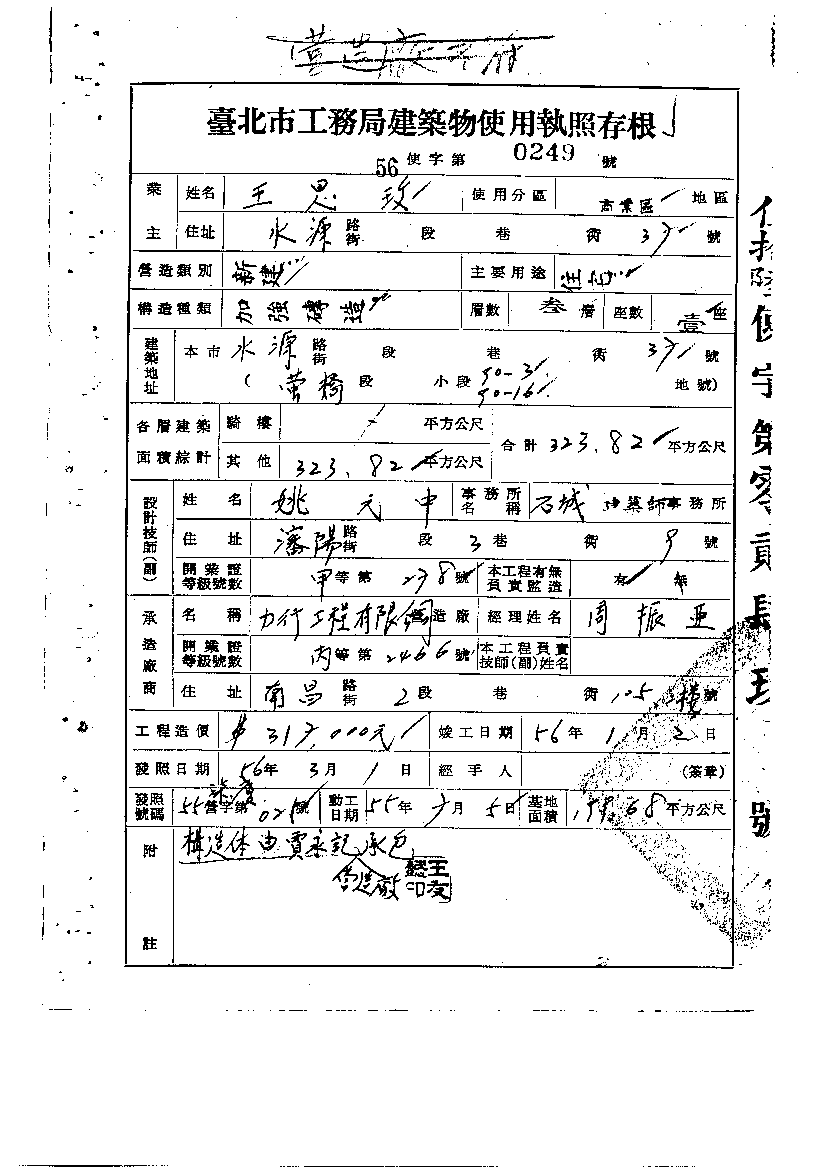 營造廠存
臺北市工務局建築物使用執照存根
56使字第0249號
業主 姓名 王思玫 使用分區 商業區 地區
住址 水源路街 段 巷 街 37 號
營造類別 新建 主要用途 住宅
構造種類 加強磚造 層數 叁層 座數 壹座
建築地址 本市水源路街 段 巷 街 37 號
(螢橋段 小段 90-3 90-16 地號)
各層建築面積綜計 騎樓 / 平方公尺 合計 323.82 平方公尺
其他 323.82 平方公尺
設計技師(副) 姓名 姚元中 事務所名稱 石城建築師事務所
住址 瀋陽路街 段 3巷 街 9 號
開業證等級號數 甲等第 278號 本工程有無負責監造 有 無
承造廠商 名稱 力行工程有限 營造廠 經理姓名 周振亜
開業證等級號數 丙等第2466號 本工程負責技師(副)姓名
住址 南昌路街 2段 巷 街 105 號 樓
工程造價 $ 317,000元 竣工日期 56年1月2日
發照日期 56年3月1日 經手人 (簽章)
發照號碼 55營字第 號 動工日期 55年7月5日 基地面積 平方公尺
附註 構造体由賈永記承包
營造廠
伍拾陸使字第零貳肆玖號